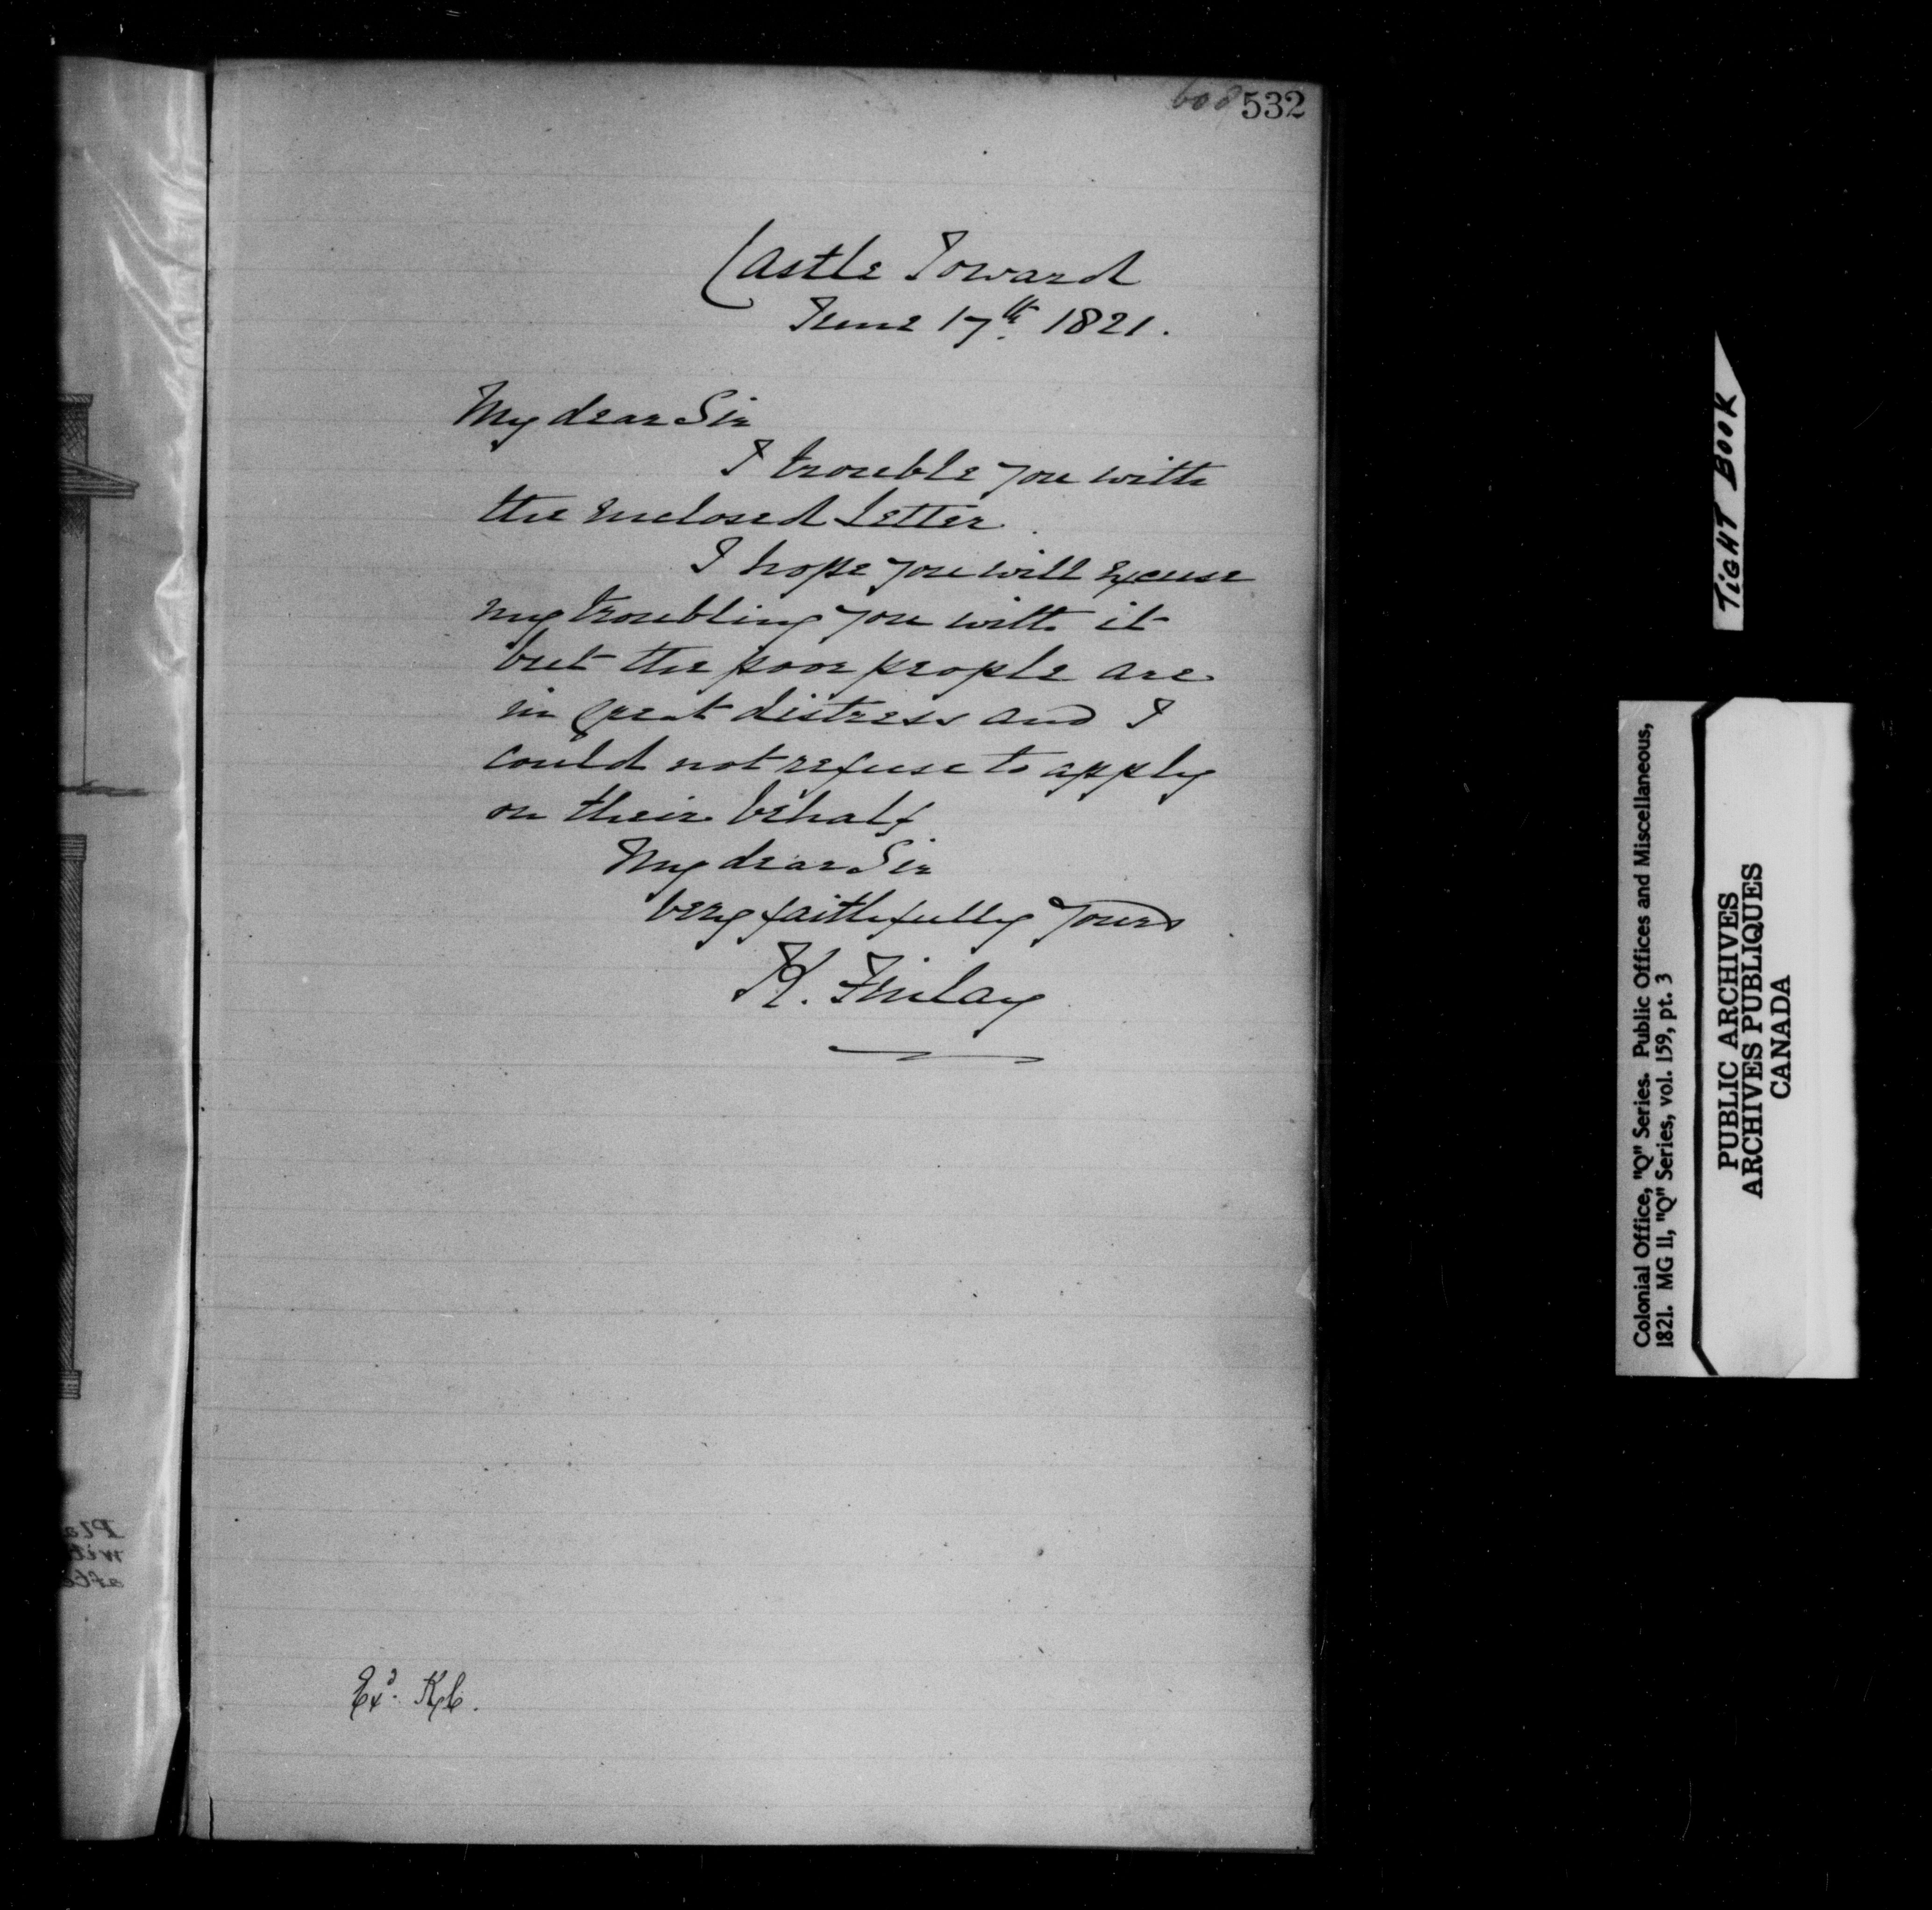 608 532
Castle Toward
June 17th 1821.
My dear Sir
I trouble you with
the enclosed letter.
I hope you will excuse
my troubling you with it
but the poor people are
in great distress and I
could not refuse to apply
on their behalf
My dear Sir
very faithfully yours
K. Finlay
Exd. K.C.
TIGHT BOOK
Colonial Office, "Q" Series. Public Offices and Miscellaneous,
1821. MG 11, "Q" Series, vol. 159, pt. 3
PUBLIC ARCHIVES
ARCHIVES PUBLIQUES
CANADA
Pla
wit
afte